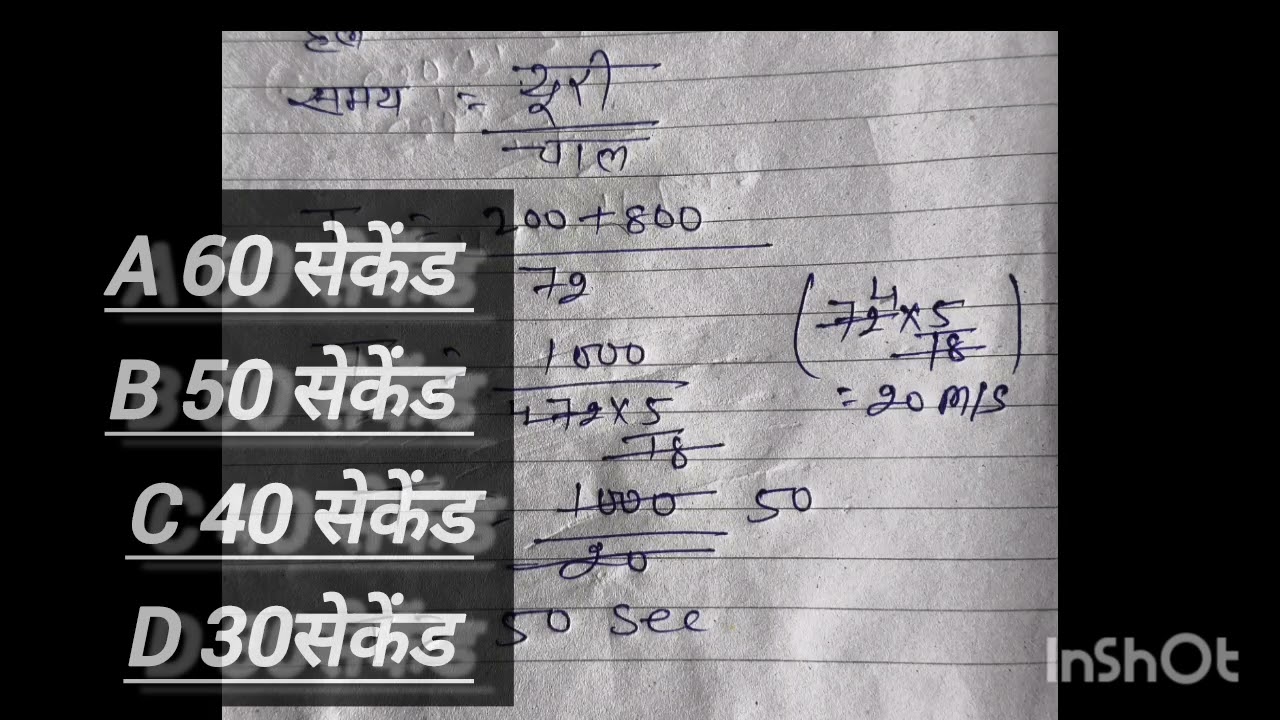 हल
समय = दूरी
चाल
T = 200+800
72
T = 1000
72×5
18
1000 50
20
50 Sec
(72 4 ×5
18)
= 20 m/s
A 60 सेकेंड
B 50 सेकेंड
C 40 सेकेंड
D 30सेकेंड
InShOt